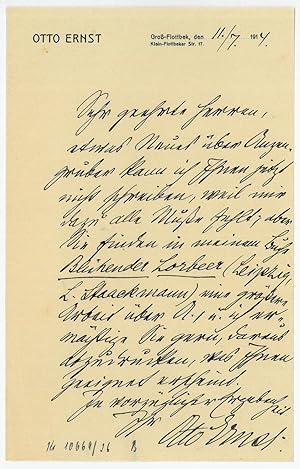 OTTO ERNST
Groß-Flottbek, den 11./7. 1914.
Klein-Flottbeker Str. 17.
Sehr geehrte Herren,
etwas Neues über Anzen-
gruber kann ich Ihnen jetzt
nicht schreiben, weil mir
dazu alle Muße fehlt; aber
Sie finden in meinem Buche
Blühender Lorbeer (Leipzig,
L. Staackmann) eine größere
Arbeit über A., u. ich er-
mächtige Sie gern, daraus
abzudrucken, was Ihnen
geeignet erscheint.
In vorzüglicher Ergebenheit
Ihr
Otto Ernst.
10669/36